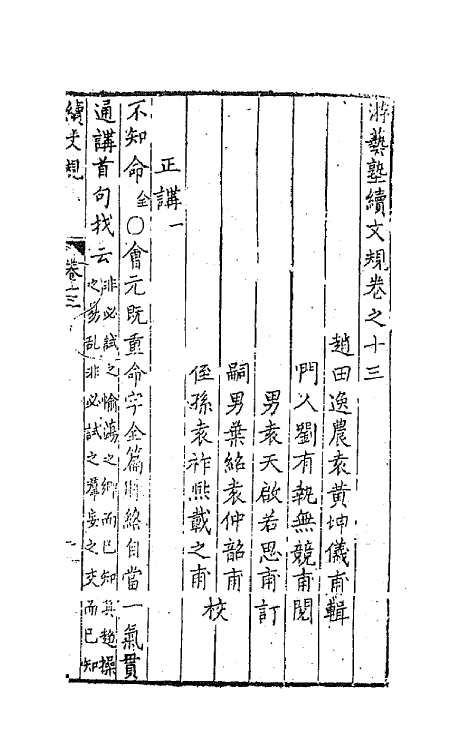 游藝塾續文規卷之十三
趙田逸農袁黃坤儀甫輯
門人劉有執無競甫閱
男袁天啟若思甫訂
嗣男葉紹袁仲韶甫
侄孫袁祚熙載之甫
校
正講一
不知命全○會元既重命字全篇脈絡自當一氣貫
通講首句找云非必試之愉蕩之鄉而已知其趨操
之易亂非必試之羣妄之交而已知
續文規
卷十三